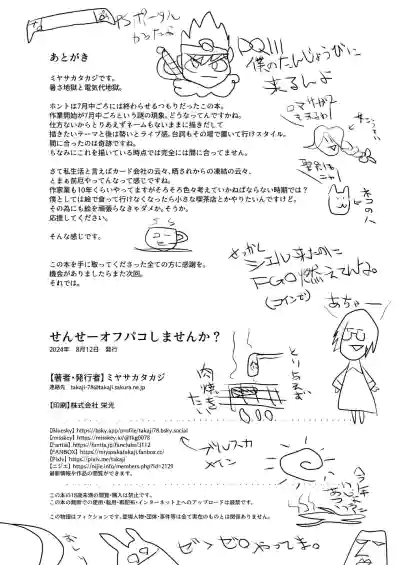 PSポータル
かったよ
DQIII
僕のたんじょうびに
来るんよ
あとがき
ミヤサカタカジです。
暑さ地獄と電気代地獄。
ホントは7月中ごろには終わらせるつもりだったこの本。
作業開始が7月中ごろという謎の現象。どうなってんですかね。
仕方ないからとりあえずネームもないままに描きだして
描きたいテーマと後は勢いとライブ感。台詞もその場で置いて行けスタイル。
間に合ったのは奇跡ですね。
ちなみにこれを描いている時点では完全には間に合ってません。
さて私生活と言えばカード会社の云々、晒されからの凍結の云々。
とまぁ厄厄やってんなって感じですね。
作家業も10年くらいやってますがそろそろ色々考えていかねばならない時期では？
僕としては絵で食って行けなくなったら小さな喫茶店とかやりたいんですけど。
その為にも絵を頑張らなきゃダメか。そうか。
応援してください。
そんな感じです。
この本を手に取ってくださった全ての方に感謝を。
機会がありましたらまた次回。
それでは。
ネコの人
せっかく
シエル来たのに
FGO燃えてんね。
あちゃー
せんせーオフパコしませんか？
2024年　8月12日　発行
【著者・発行者】ミヤサカタカジ
連絡先　takaji-78@takaji.sakura.ne.jp
【印刷】株式会社 栄光
とりあえず
肉焼きたい
【Bluesky】https://bsky.app/profile/takaji78.bsky.social
【misskey】https://misskey.io/@thg0078
【Fantia】https://fantia.jp/fanclubs/3112
【FANBOX】https://miyasakatakaji.fanbox.cc/
【Pixiv】https://pixiv.me/takaji
【ニジエ】https://nijie.info/members.php?id=2129
最新情報や作品の閲覧ができます。
この本の18歳未満の閲覧・購入は禁止です。
この本の無断での使用・転用・再配布・インターネット上へのアップロードは厳禁です。
この物語はフィクションです。登場人物・団体・事件等は全て実在のものとは関係ありません。
ゼンゼロやってま。